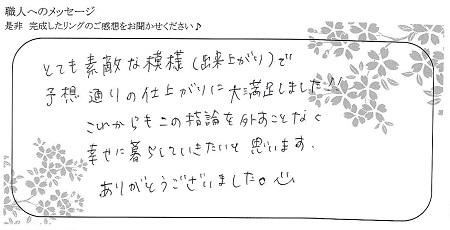 職人へのメッセージ
是非 完成したリングのご感想をお聞かせください♪
とても素敵な模様(出来上がり)で
予想通りの仕上がりに大満足しました!!
これからもこの指論を外すことなく
幸せに暮らしていきたいと思います.
ありがとうございました。